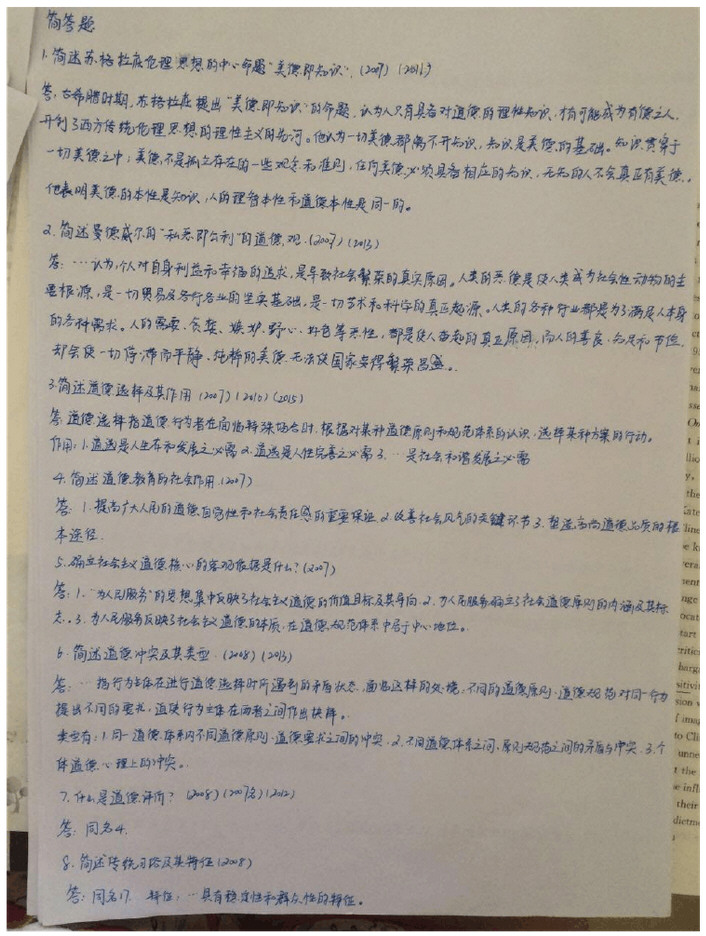 简答题
1.简述苏格拉底伦理思想的中心命题"美德即知识".(2007)(2011)
答:古希腊时期,苏格拉底提出"美德即知识"的命题,认为人只有具备对道德的理性知识,才有可能成为有德之人,
开创了西方传统伦理思想的理性主义的先河。他认为一切美德都离不开知识,知识是美德的基础。知识贯穿于
一切美德之中;美德不是孤立存在的一些观念和准则,任何美德必须具备相应的知识,无知的人不会真正有美德。
他表明美德的本性是知识,人的理智本性和道德本性是同一的。
2.简述曼德威尔的"私恶即公利"的道德观.(2007)(2013)
答:…认为,个人对自身利益和幸福的追求,是导致社会繁荣的真实原因。人类的恶德是使人类成为社会性动物的主
要根源,是一切贸易及各行各业的坚实基础,是一切艺术和科学的真正起源。人类的各种行业都是为了满足人本身
的各种需求。人的需要、贪婪、嫉妒、野心、好色等恶性,都是使人奋起的真正原因,而人的善良、知足和节俭,
却会使一切停滞而平静、纯粹的美德无法使国家变得繁荣昌盛。
3.简述道德选择及其作用(2007)(2010)(2015)
答:道德选择指道德行为者在面临特殊场合时,根据对某种道德原则和规范体系的认识,选择某种方案的行动。
作用:1.道选是人生存和发展之必需 2.道选是人性完善之必需 3.…是社会和谐发展之必需
4.简述道德教育的社会作用.(2007)
答:1.提高广大人民的道德自觉性和社会责任感的重要保证 2.改善社会风气的关键环节 3.塑造高尚道德品质的根
本途径.
5.确立社会主义道德核心的客观依据是什么?(2007)
答:1."为人民服务"的思想集中反映了社会主义道德的价值目标及其导向.2.为人民服务确立了社会道德原则的内涵及其标
志。3.为人民服务反映了社会主义道德的本质,在道德规范体系中居于中心地位。
6.简述道德冲突及其类型.(2008)(2013)
答:…指行为主体在进行道德选择时所遇到的矛盾状态,面临这样的处境:不同的道德原则、道德规范对同一行为
提出不同的要求,迫使行为主体在两者之间作出抉择。
类型有:1.同一道德体系内不同道德原则、道德要求之间的冲突.2.不同道德体系之间,原则规范之间的矛盾与冲突.3.个
体道德心理上的冲突。
7.什么是道德评价?(2008)(2007名)(2012)
答:同名4.
8.简述传统习俗及其特征(2008)
答:同名17.特征:…具有稳定性和群众性的特征。